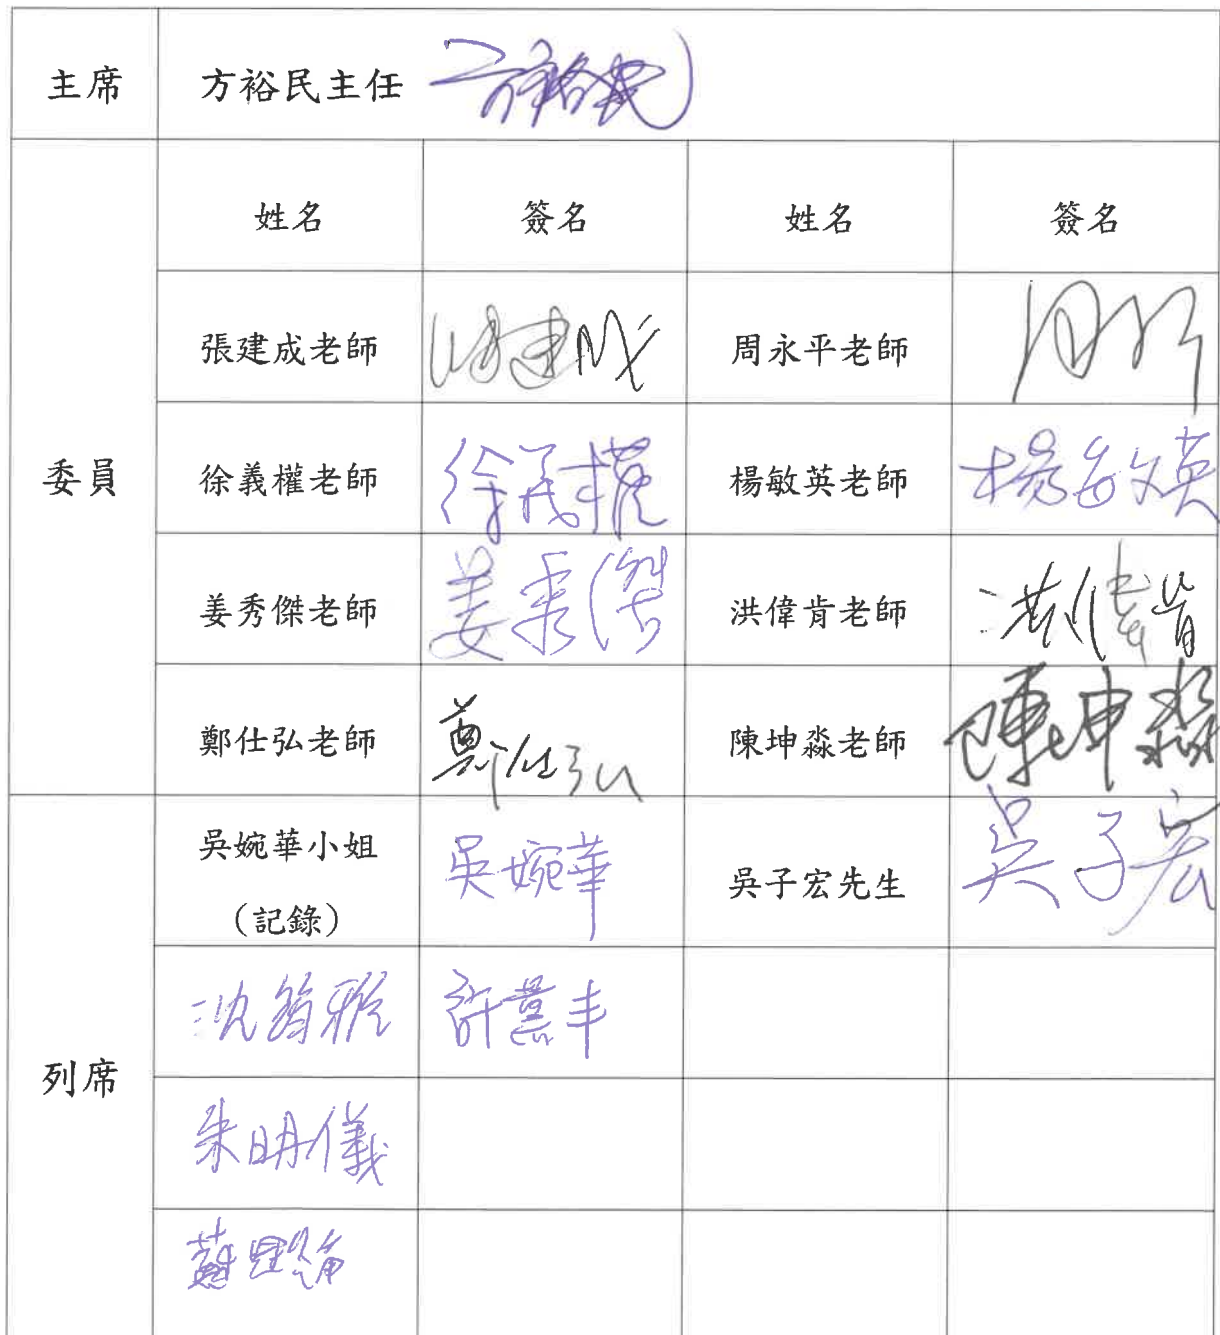 主席 方裕民主任 方裕民
姓名 簽名 姓名 簽名
張建成老師 張建成 周永平老師
委員 徐義權老師 徐義權 楊敏英老師 楊敏英
姜秀傑老師 姜秀傑 洪偉肯老師 洪偉肯
鄭仕弘老師 鄭仕弘 陳坤淼老師 陳坤淼
吳婉華小姐 吳婉華 吳子宏先生 吳子宏
(記錄)
列席
許薰丰
朱明儀